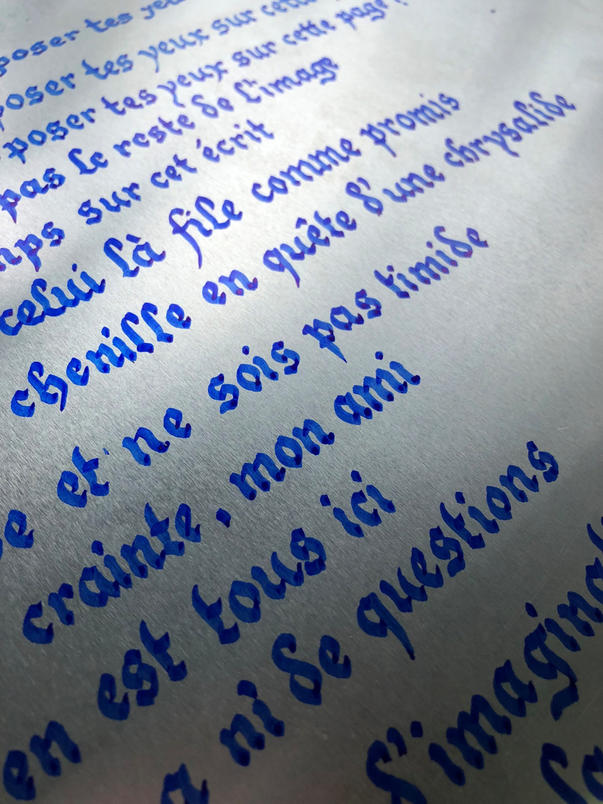 poser tes yeux
poser tes yeux sur cette
poser tes yeux sur cette page
pas le reste de l'image
sur cet écrit
celui là file comme promis
chenille en quête d'une chrysalide
et ne sois pas timide
crainte, mon ami
en est tous ici
ni de questions
d'imagina